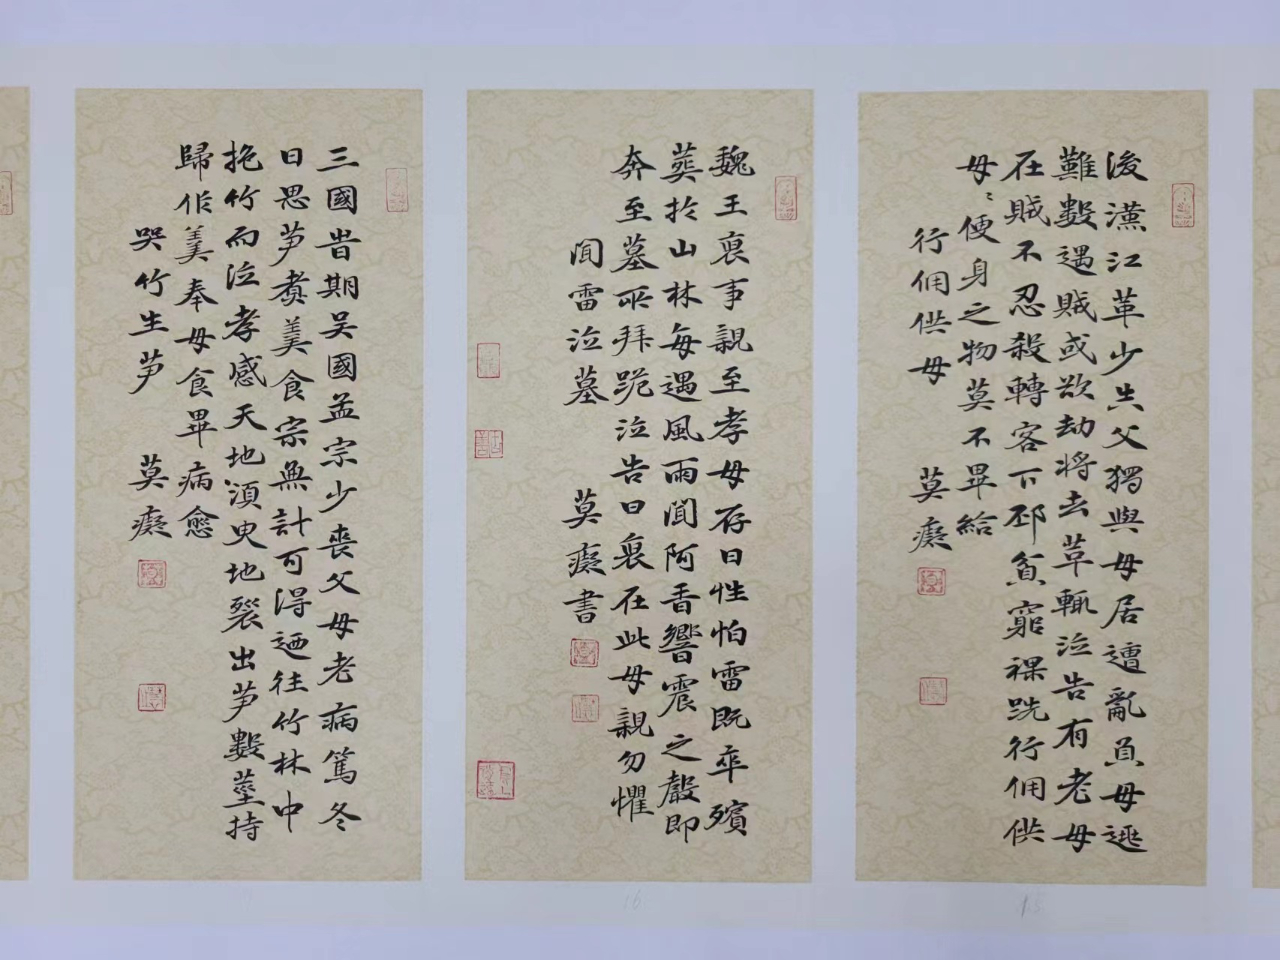 後漢江革少失父獨與母居遭亂負母逃
難數遇賊或欲劫將去革輒泣告有老母
在賊不忍殺轉客下邳貧窮裸跣行佣供
母〻便身之物莫不畢給
行佣供母
莫癡
魏王裒事親至孝母存日性怕雷既卒殯
葬於山林每遇風雨聞阿香響震之聲即
奔至墓所拜跪泣告曰裒在此母親勿懼
聞雷泣墓
莫癡書
三國昔期吴國孟宗少喪父母老病篤冬
日思芛煑羹食宗無計可得廼往竹林中
抱竹而泣孝感天地湏臾地裂出芛數莖持
歸作羹奉母食畢病愈
哭竹生芛
莫癡
16
15